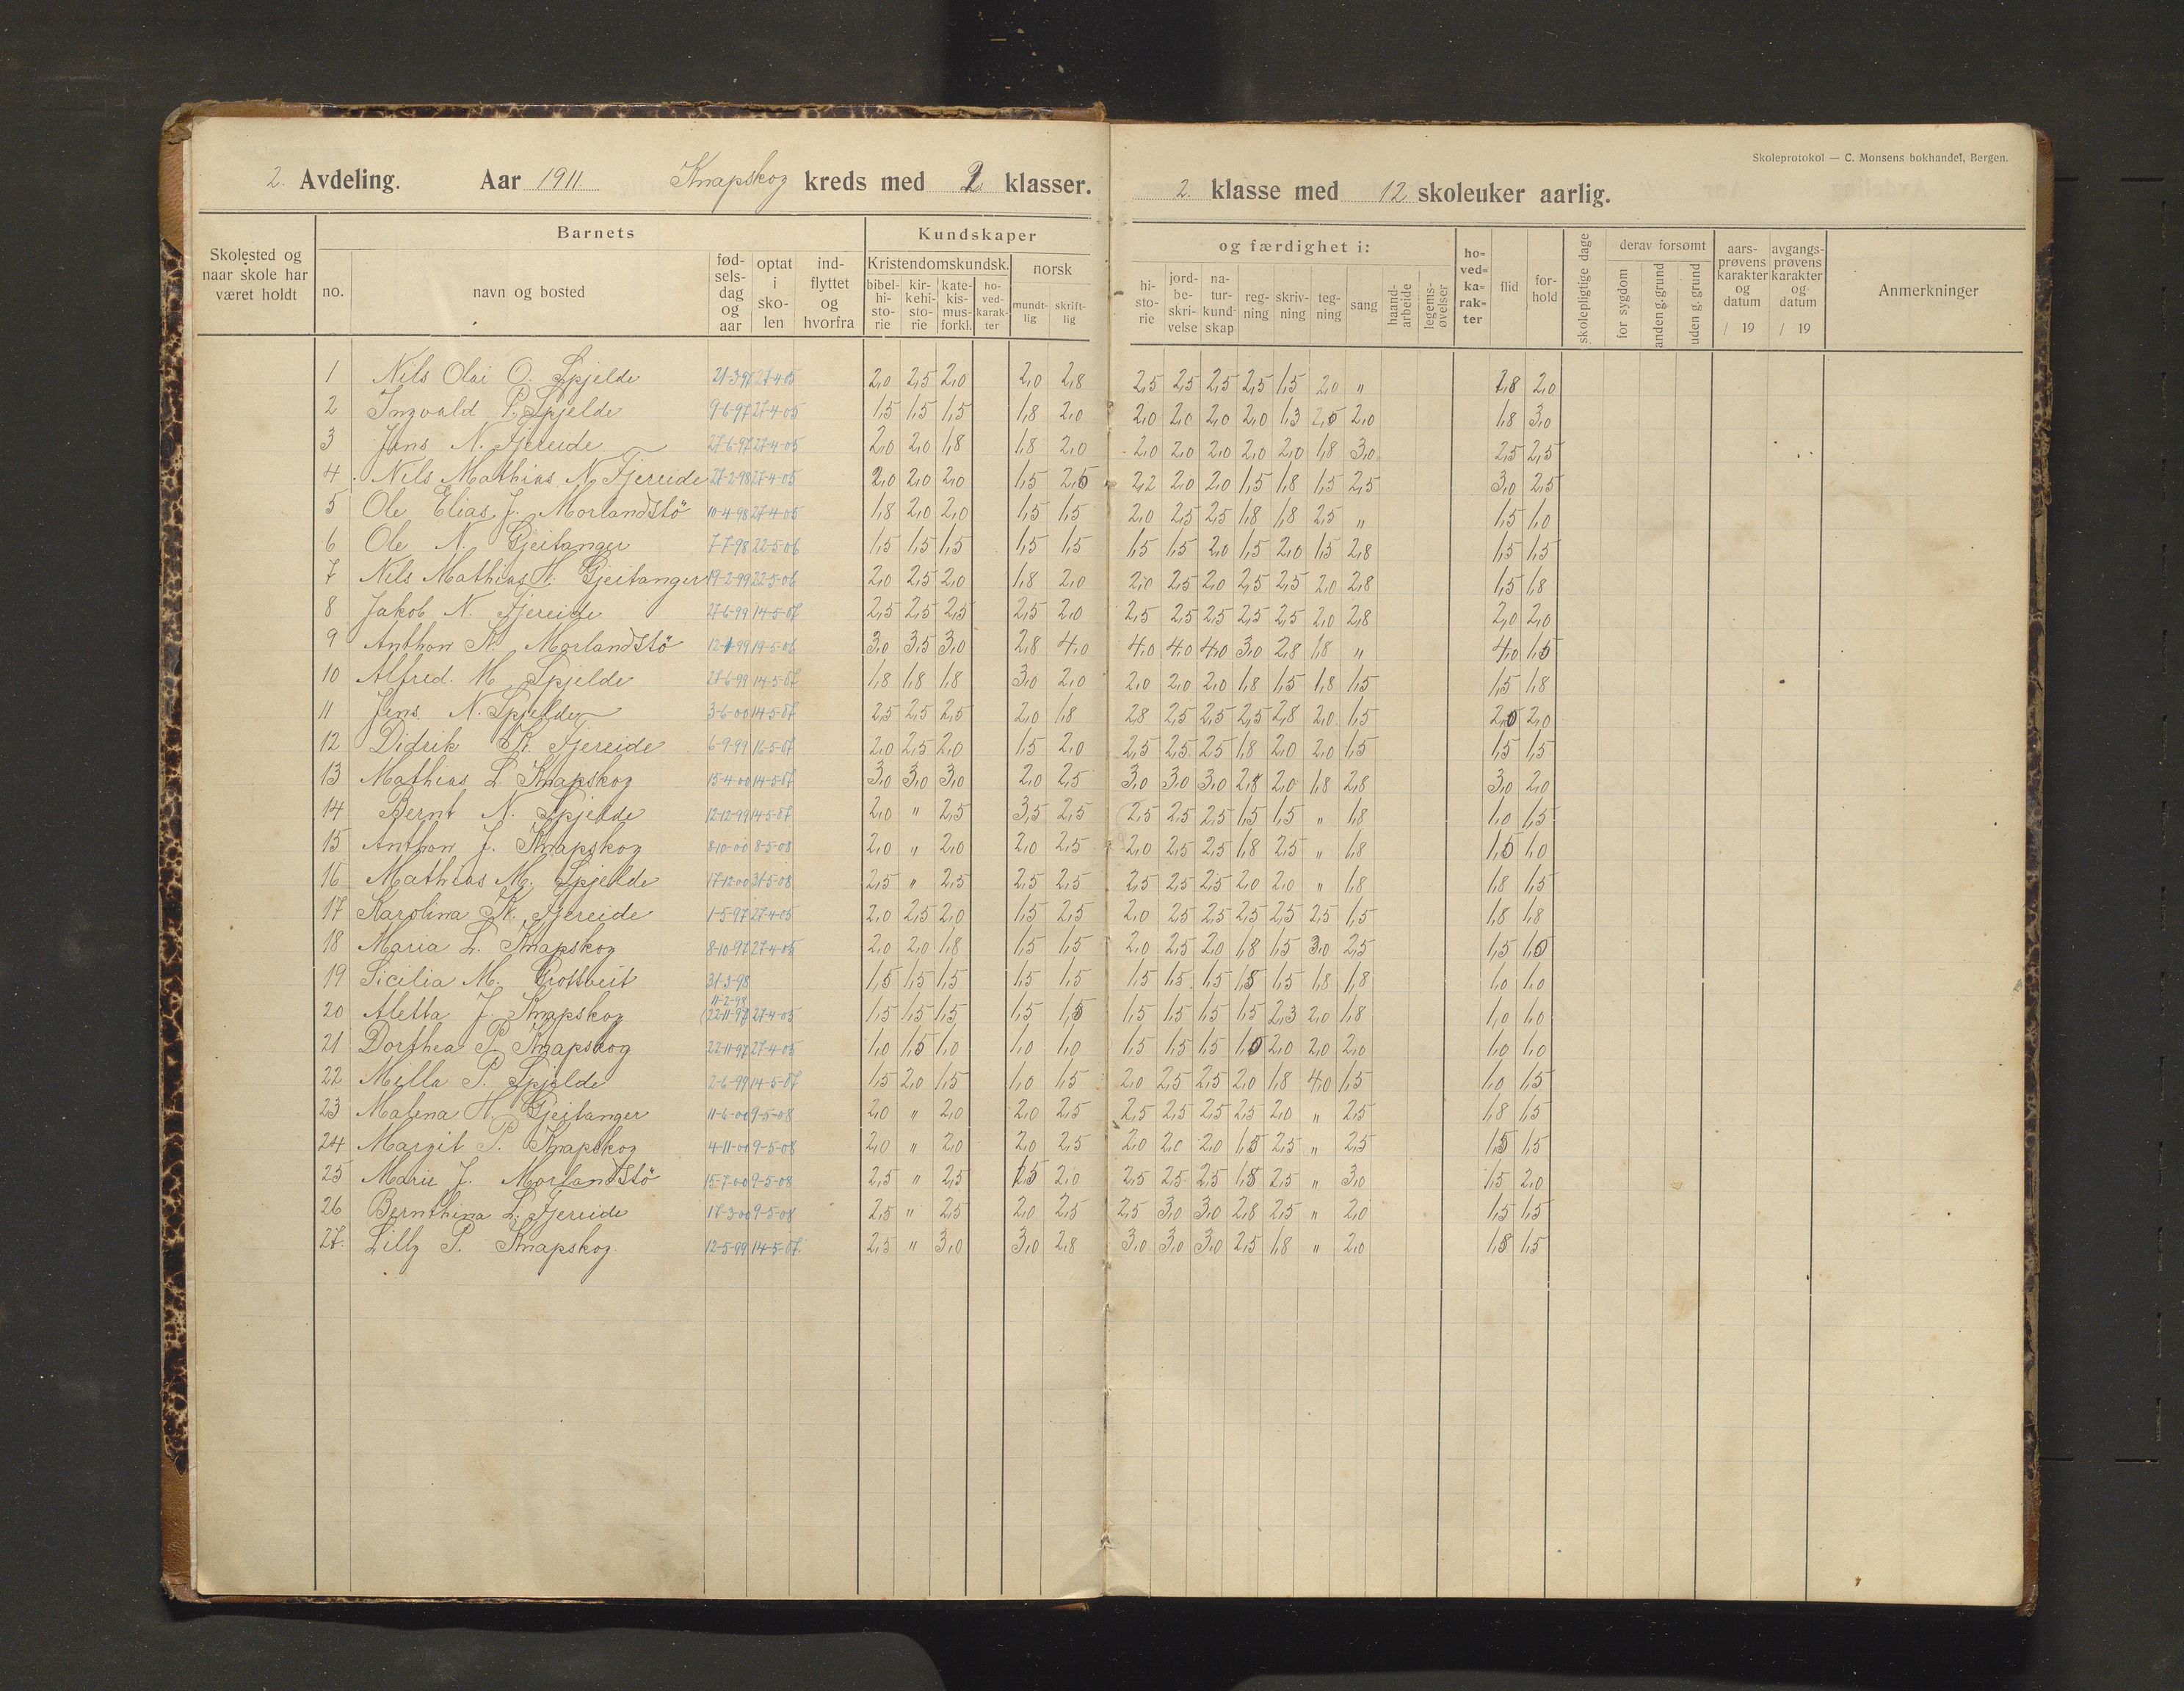 Skoleprotokol — C. Monsens bokhandel, Bergen.
2. Avdeling. Aar 1911 Knapskog kreds med 2 klasser. 2 klasse med 12 skoleuker aarlig.
Skolested og naar skole har været holdt
Barnets
no.
navn og bosted
fødselsdag og aar
optat i skolen
indflyttet og hvorfra
Kundskaper og færdighet i:
Kristendomskundsk.
bibelhistorie
kirkehistorie
katekismusforkl.
hovedkarakter
norsk
mundtlig
skriftlig
historie
jordbeskrivelse
naturkundskap
regning
skrivning
tegning
sang
haandarbeide
legemsøvelser
hovedkarakter
flid
forhold
skolepligtige dage
derav forsømt
for sygdom
anden g. grund
uden g. grund
aarsprøvens karakter og datum / 19
avgangsprøvens karakter og datum / 19
Anmerkninger
1 Nils Olai O. Spjelde 21-3-97 27-4-05 2,0 2,5 2,0 2,0 2,8 2,5 2,5 2,5 2,5 1,5 2,0 " 2,0
2 Ingvald P. Spjelde 9-6-97 27-4-05 1,5 1,5 1,5 1,8 2,0 2,0 2,0 2,0 2,0 1,3 2,0 1,8 3,0
3 Jens N. Fjereide 27-6-97 27-4-05 2,0 2,0 1,8 1,8 2,0 2,0 2,0 2,0 2,0 2,0 1,8 3,0 2,5 2,5
4 Nils Mathias N. Fjereide 27-2-98 27-4-05 2,0 2,0 2,0 1,5 2,2 2,0 2,0 1,5 1,8 1,5 2,5 3,0 2,5
5 Ole Elias J. Morlandstö 10-4-98 27-4-05 1,8 2,0 2,0 1,5 1,5 2,0 2,5 2,5 1,8 1,8 2,5 " 1,5 1,0
6 Ole N. Gjeitanger 7-7-98 22-5-06 1,5 1,5 1,5 1,5 1,5 1,5 1,5 2,0 1,5 2,0 1,5 2,8 1,5 1,5
7 Nils Mathias H. Gjeitanger 19-2-99 22-5-06 2,0 2,5 2,0 1,8 2,0 2,0 2,5 2,0 2,5 2,5 2,0 2,8 1,5 1,8
8 Jakob N. Fjereide 27-6-99 14-5-07 2,5 2,5 2,5 2,5 2,0 2,5 2,5 2,5 2,5 2,5 2,0 2,8 2,0 2,0
9 Anthon K. Morlandstö 19-5-06 3,0 3,5 3,0 2,8 4,0 4,0 4,0 4,0 3,0 2,8 1,8 " 4,0 1,5
10 Alfred. M. Spjelde 27-6-99 14-5-07 1,8 1,8 1,8 3,0 2,0 2,0 2,0 2,0 1,8 1,5 1,8 1,5 1,5 1,8
11 Jens N. Spjelde 3-6-00 14-5-07 2,5 2,5 2,5 2,0 1,8 2,8 2,5 2,5 2,5 2,8 2,0 1,5 2,0 2,0
12 Didrik K. Fjereide 6-9-99 16-5-07 2,0 2,5 2,0 1,5 2,0 2,5 2,5 2,5 1,8 2,0 2,0 1,5 1,5 1,5
13 Mathias L. Knapskog 15-4-00 14-5-07 3,0 3,0 3,0 2,0 2,5 3,0 3,0 3,0 2,8 2,0 1,8 2,8 3,0 2,0
14 Bernt N. Spjelde 12-12-99 14-5-07 2,0 " 2,5 3,5 2,5 2,5 2,5 2,5 1,5 1,5 " 1,8 1,0 1,5
15 Anthon J. Knapskog 8-10-00 8-5-08 2,0 " 2,0 2,0 2,5 2,0 2,5 2,5 1,8 2,5 " 1,8 1,5 1,0
16 Mathias M. Spjelde 17-12-00 31-5-08 2,5 " 2,5 2,5 2,5 2,5 2,5 2,5 2,0 2,0 " 1,8 1,8 1,5
17 Karolina K. Fjereide 1-5-97 27-4-05 2,0 2,5 2,0 1,5 2,5 2,0 2,5 2,5 2,5 2,5 2,5 1,5 1,8 1,8
18 Maria L. Knapskog 8-10-97 27-4-05 2,0 2,0 1,8 1,5 1,5 2,0 2,5 2,0 1,8 1,5 3,0 2,5 1,5
19 Sicilia M. 31-3-98 1,5 1,5 1,5 1,5 1,5 1,5 1,5 1,5 1,5 1,5 1,8 1,8 1,0 1,0
11-2-98
20 Aletta J. Knapskog (22-11-97 27-4-05 1,5 1,5 1,5 1,5 1,5 1,5 1,5 1,5 1,5 2,3 2,0 1,8 1,0 1,0
21 Dorthea P. Knapskog 22-11-97 27-4-05 1,0 1,5 1,0 1,0 1,0 1,5 1,5 1,5 2,0 2,0 2,0 1,0 1,0
22 Milla P. Spjelde 2-6-99 14-5-07 1,5 2,0 1,5 1,0 1,5 2,0 2,5 2,5 2,0 1,8 4,0 1,5 1,0 1,5
23 Malena H. Gjeitanger 11-6-00 9-5-08 2,0 " 2,0 2,0 2,5 2,5 2,5 2,5 2,5 2,0 " 2,5 1,8 1,5
24 Margit P. Knapskog 4-11-00 9-5-08 2,0 " 2,0 2,0 2,5 2,0 2,0 2,0 1,5 2,5 " 2,5 1,5 1,5
25 Marie J. Morlandstö 15-7-00 9-5-08 2,5 " 2,5 1,5 2,0 2,5 2,5 2,5 1,8 2,5 " 3,0 1,5 2,0
26 Bernthina L. Fjereide 17-3-00 9-5-08 2,5 " 2,5 2,0 2,5 2,5 3,0 3,0 2,8 2,5 " 2,0 1,5 1,5
27. Lilly P. Knapskog. 12-5-99 14-5-07. 2,5 " 3,0 3,0 2,8 3,0 3,0 3,0 2,5 1,8 " 2,0 1,8 1,5